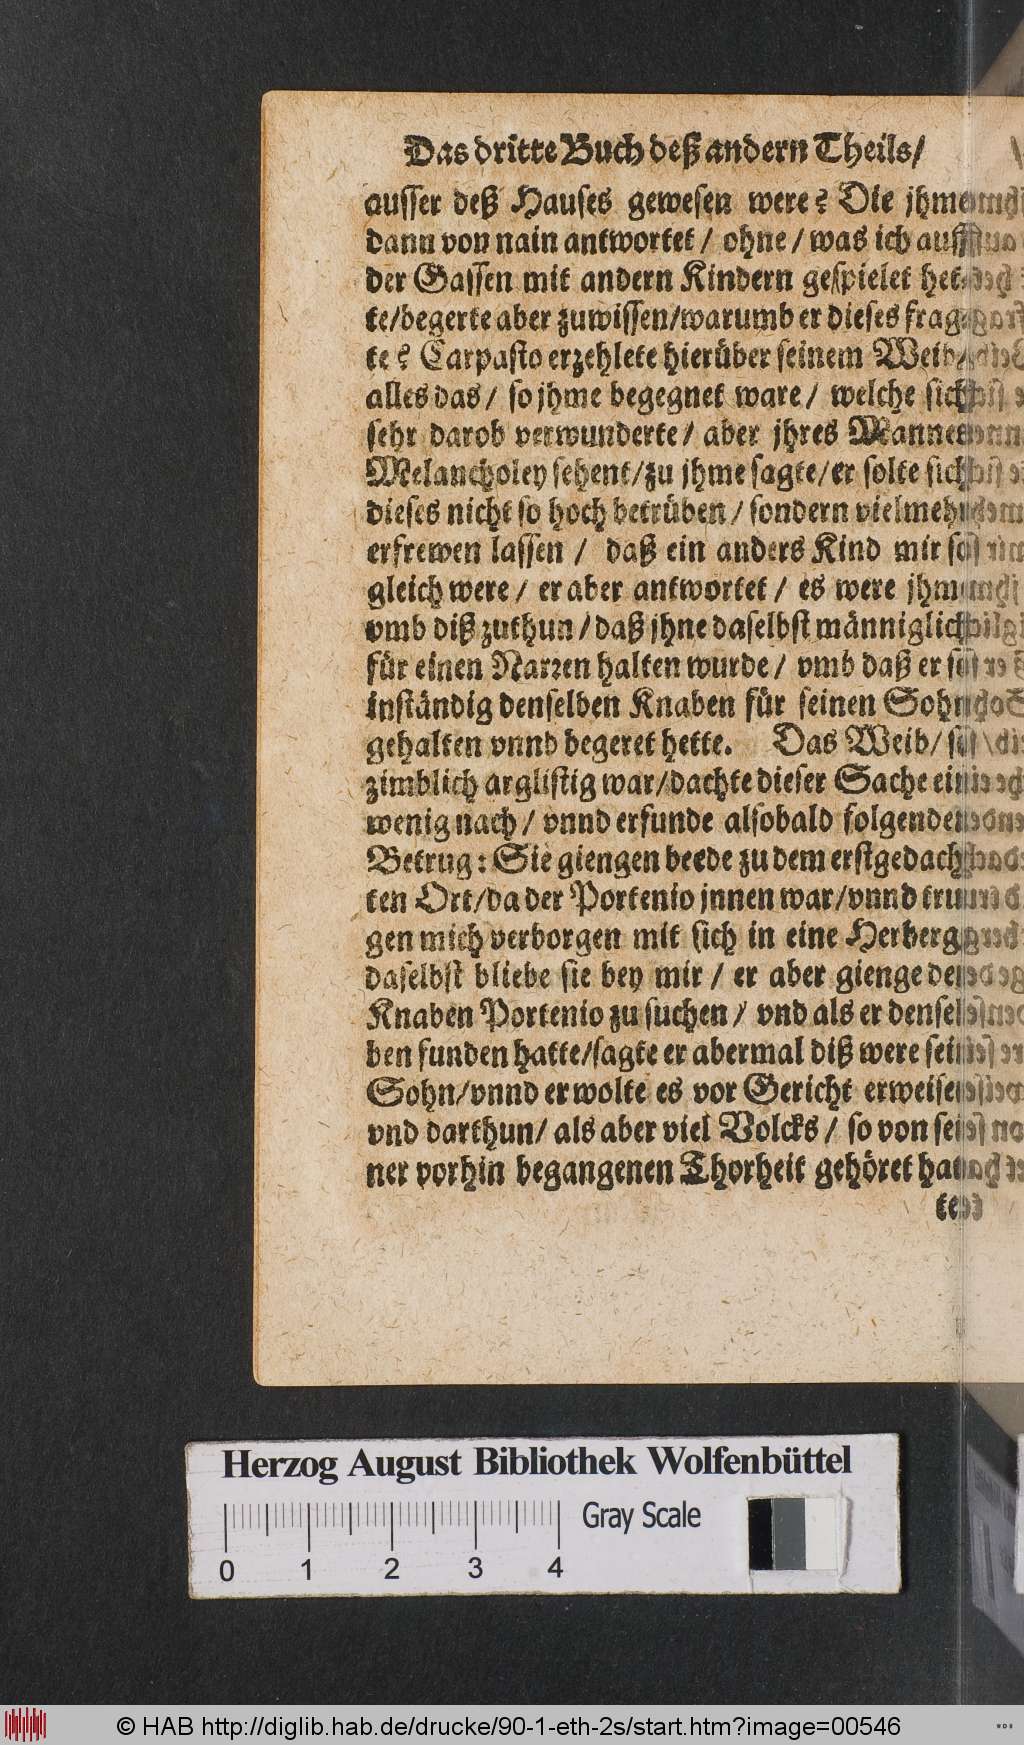 Das dritte Buch deß andern Theils/
ausser deß Hauses gewesen were? Die jhme
dann von nain antwortet / ohne / was ich auff
der Gassen mit andern Kindern gespielet het-
te/begerte aber zuwissen/warumb er dieses frag-
te? Carpasto erzehlete hierüber seinem Weib/
alles das / so jhme begegnet ware / welche sich
sehr darob verwunderte / aber jhres Mannes
Melancholey sehent/zu jhme sagte/er solte sich
dieses nicht so hoch betrüben / sondern vielmehr
erfrewen lassen / daß ein anders Kind mir so
gleich were / er aber antwortet / es were jhm
vmb diß zuthun / daß jhne daselbst männiglich
für einen Narren halten wurde / vmb daß er so
inständig denselben Knaben für seinen Sohn
gehalten vnnd begeret hette. Das Weib / so
zimblich arglistig war/dachte dieser Sache ein
wenig nach / vnnd erfunde alsobald folgenden
Betrug: Sie giengen beede zu dem erstgedach-
ten Ort/da der Portenio jnnen war/vnnd tru-
gen mich verborgen mit sich in eine Herberg
daselbst bliebe sie bey mir / er aber gienge den
Knaben Portenio zu suchen / vnd als er densel-
ben funden hatte/sagte er abermal diß were sein
Sohn/vnnd er wolte es vor Gericht erweisen
vnd darthun/ als aber viel Volcks / so von sei-
ner vorhin begangenen Thorheit gehöret hat-
te
Herzog August Bibliothek Wolfenbüttel
Gray Scale
0 1 2 3 4
© HAB http://diglib.hab.de/drucke/90-1-eth-2s/start.htm?image=00546